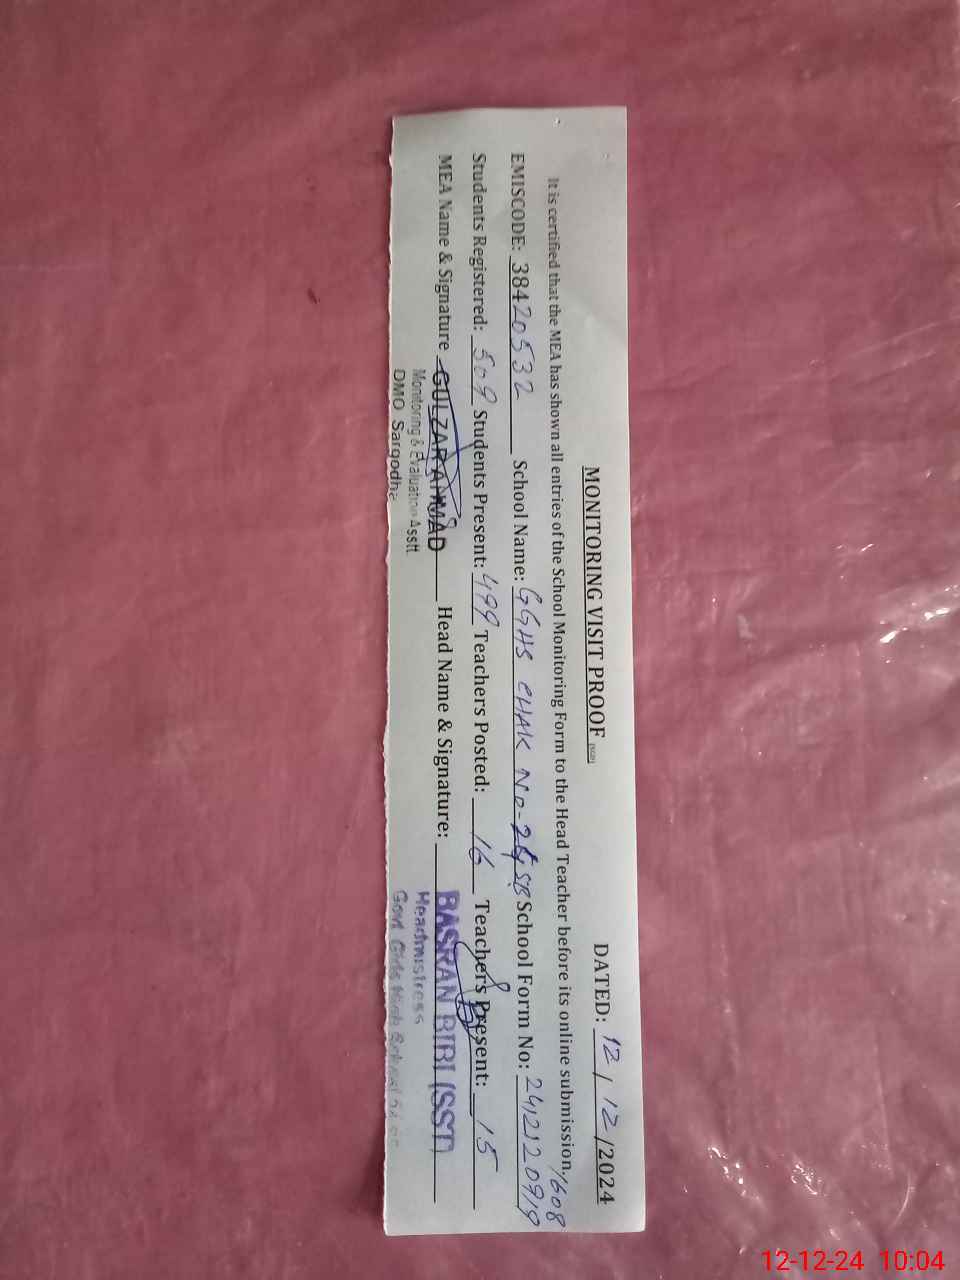 MONITORING VISIT PROOF
DATED: 12 / 12 /2024
It is certified that the MEA has shown all entries of the School Monitoring Form to the Head Teacher before its online submission.
1608
EMISCODE: 38420532 School Name: GGHS CHAK NO-24 SB School Form No: 2412120919
Students Registered: 509 Students Present: 499 Teachers Posted: 16 Teachers Present: 15
MEA Name & Signature GULZAR AHMAD Head Name & Signature: BASRAN BIBI (SST)
Monitoring & Evaluation Asstt. Headmistress
DMO Sargodha Govt Girls High School
12-12-24 10:04